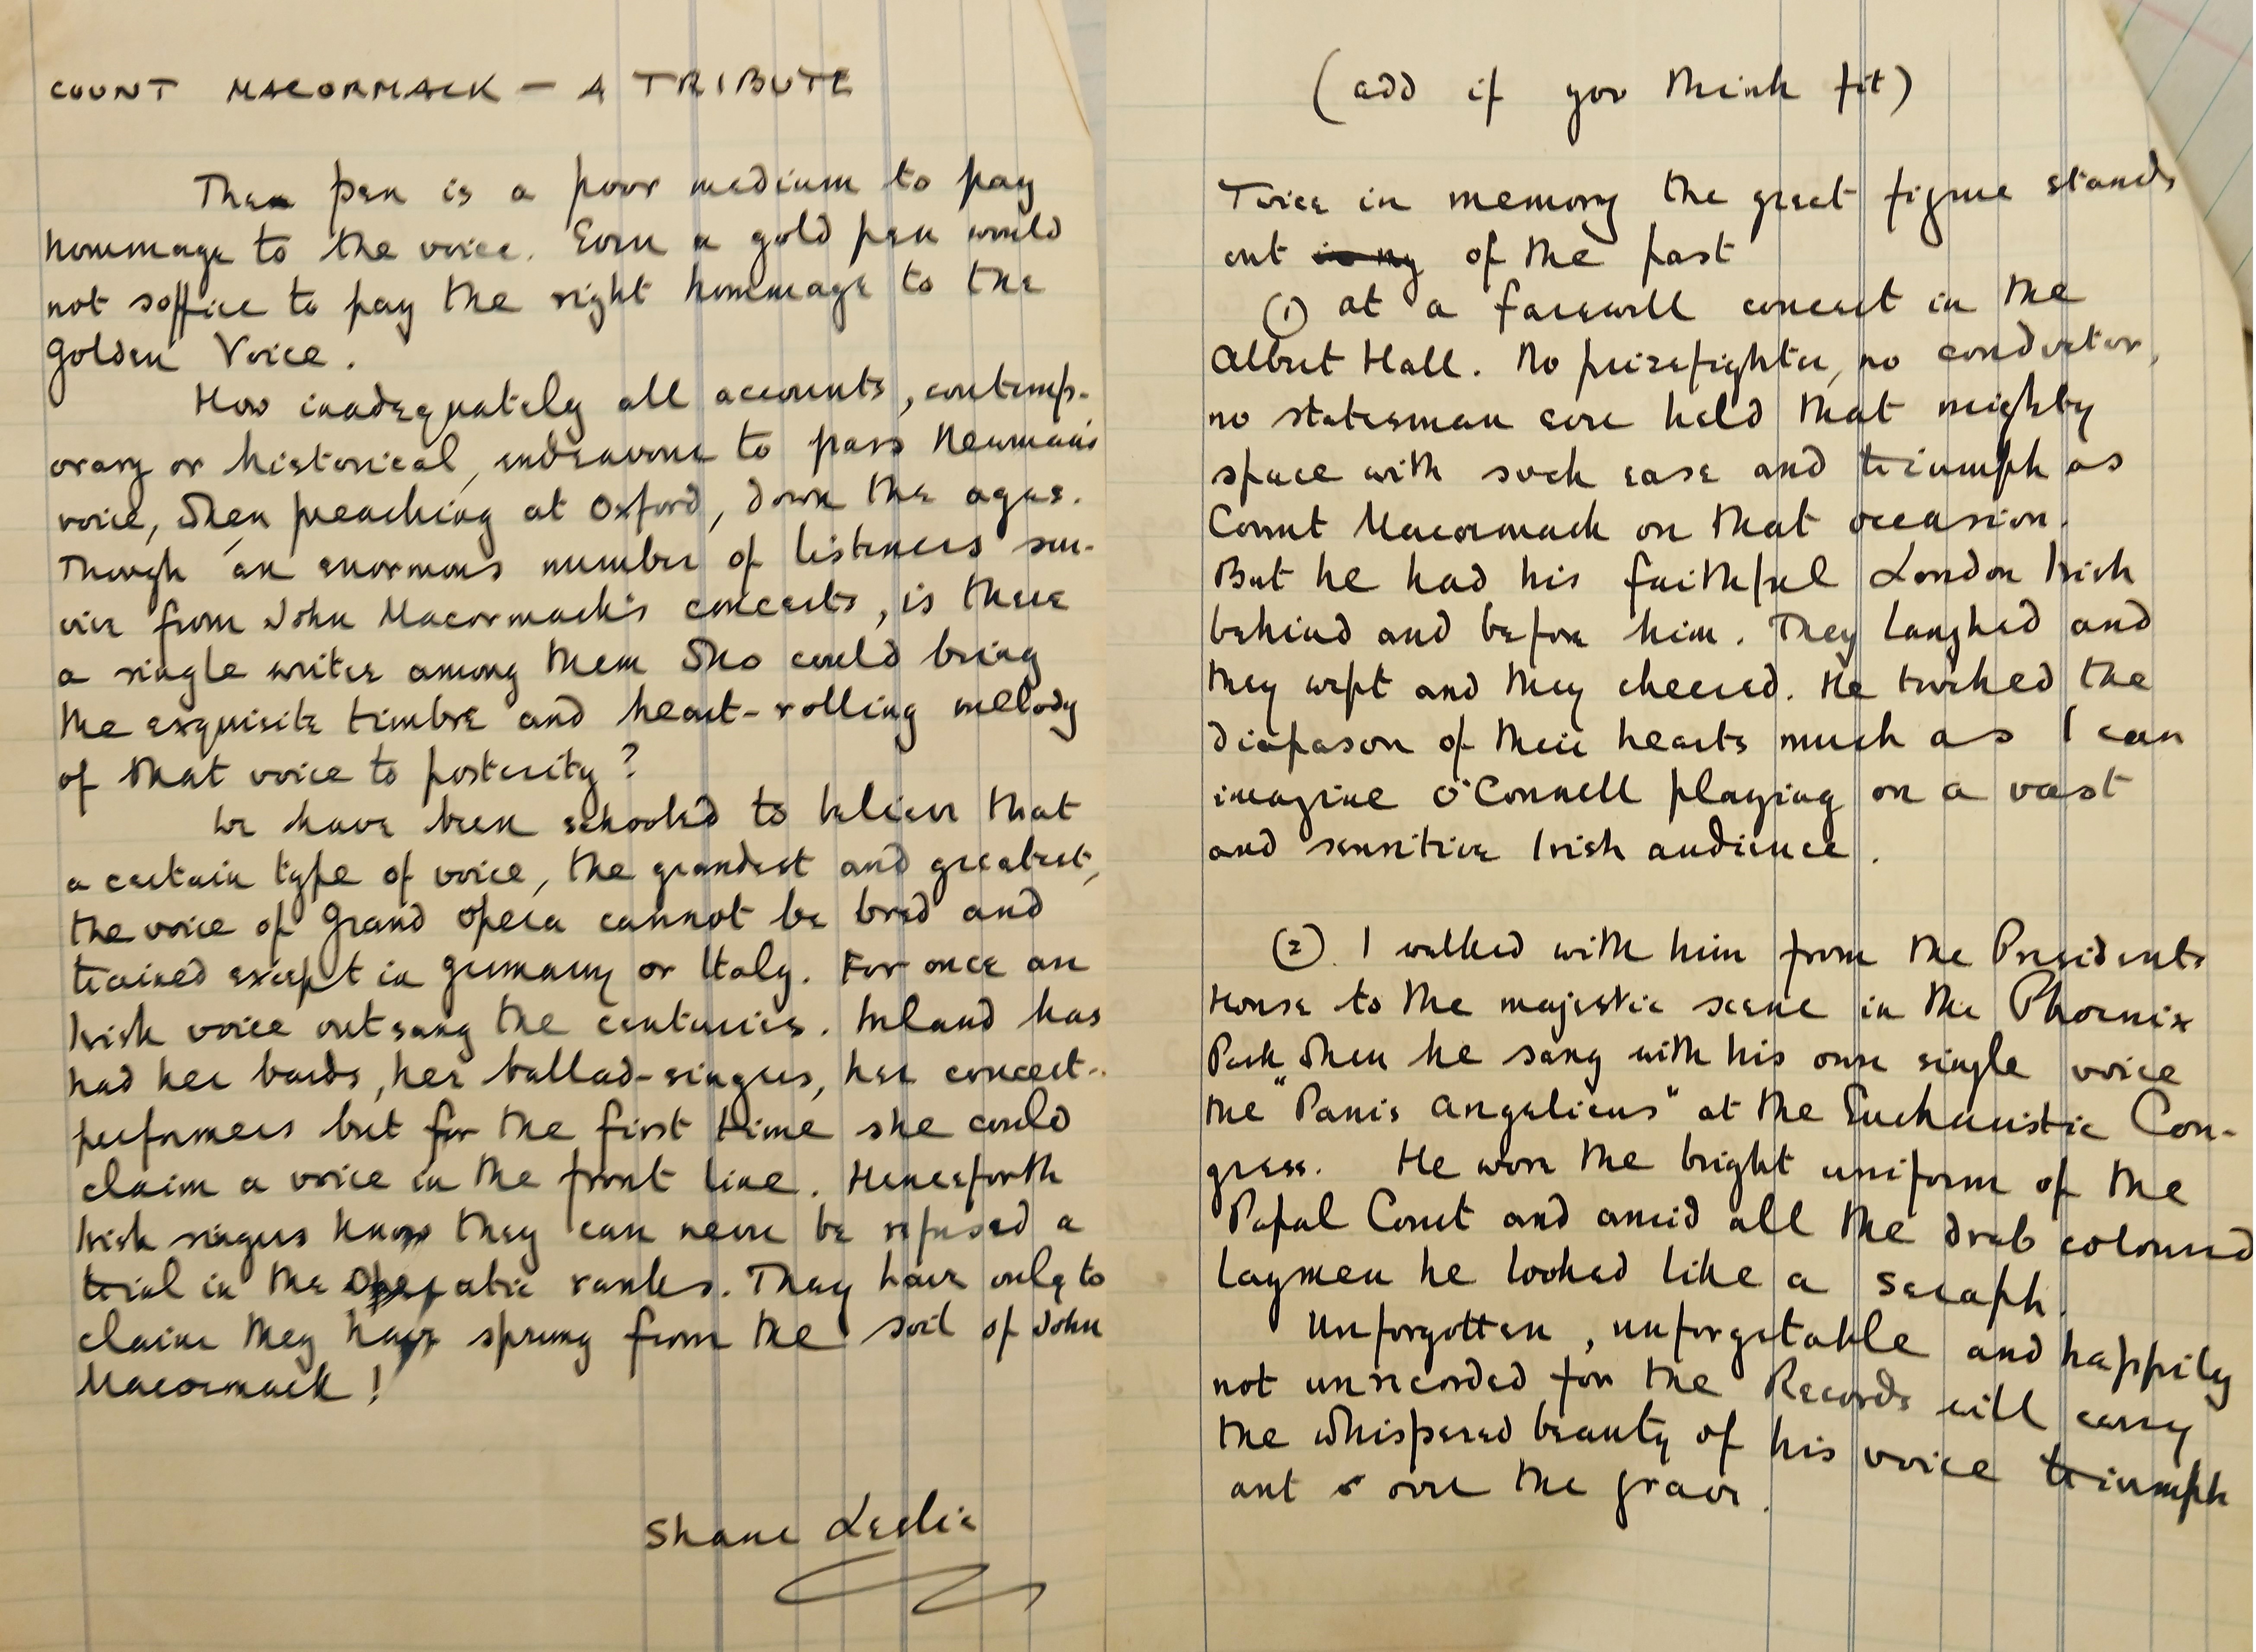 COUNT MACORMACK – A TRIBUTE
The pen is a poor medium to pay
hommage to the voice. Even a gold pen would
not soffice to pay the right hommage to the
Golden Voice.
How inadequately all accounts, contemp-
orary or historical, endeavour to pass Newman's
voice, when preaching at Oxford, down the ages.
Though an enormous number of listeners sur-
vive from John Macormack's concerts, is there
a single writer among them who could bring
the exquisite timbre and heart-rolling melody
of that voice to posterity?
We have been schooled to believe that
a certain type of voice, the grandest and greatest,
the voice of Grand Opera cannot be bred and
trained except in Germany or Italy. For once an
Irish voice outsang the centuries. Ireland has
had her bards, her ballad-singers, her concert-
performers but for the first time she could
claim a voice in the front line. Henceforth
Irish singers know they can never be refused a
trial in the Operatic ranks. They have only to
claim they have sprung from the soil of John
Macormack!
Shane Leslie
(add if you think fit)
Twice in memory the great figure stands
out in my of the past
(1) at a farewell concert in the
Albert Hall. No prizefighter, no conductor,
no statesman ever held that mighty
space with such ease and triumph as
Count Macormack on that occasion.
But he had his faithful London Irish
behind and before him. They laughed and
they wept and they cheered. He touched the
diapason of their hearts much as I can
imagine O'Connell playing on a vast
and sensitive Irish audience.
(2). I walked with him from the Presidents
House to the majestic scene in the Phoenix
Park when he sang with his own single voice
the "Panis Angelicus" at the Eucharistic Con-
gress. He wore the bright uniform of the
Papal Court and amid all the drab coloured
laymen he looked like a seraph.
Unforgotten, unforgetable and happily
not unrecorded for the Records will carry
the whispered beauty of his voice triumph
ant over the grave.